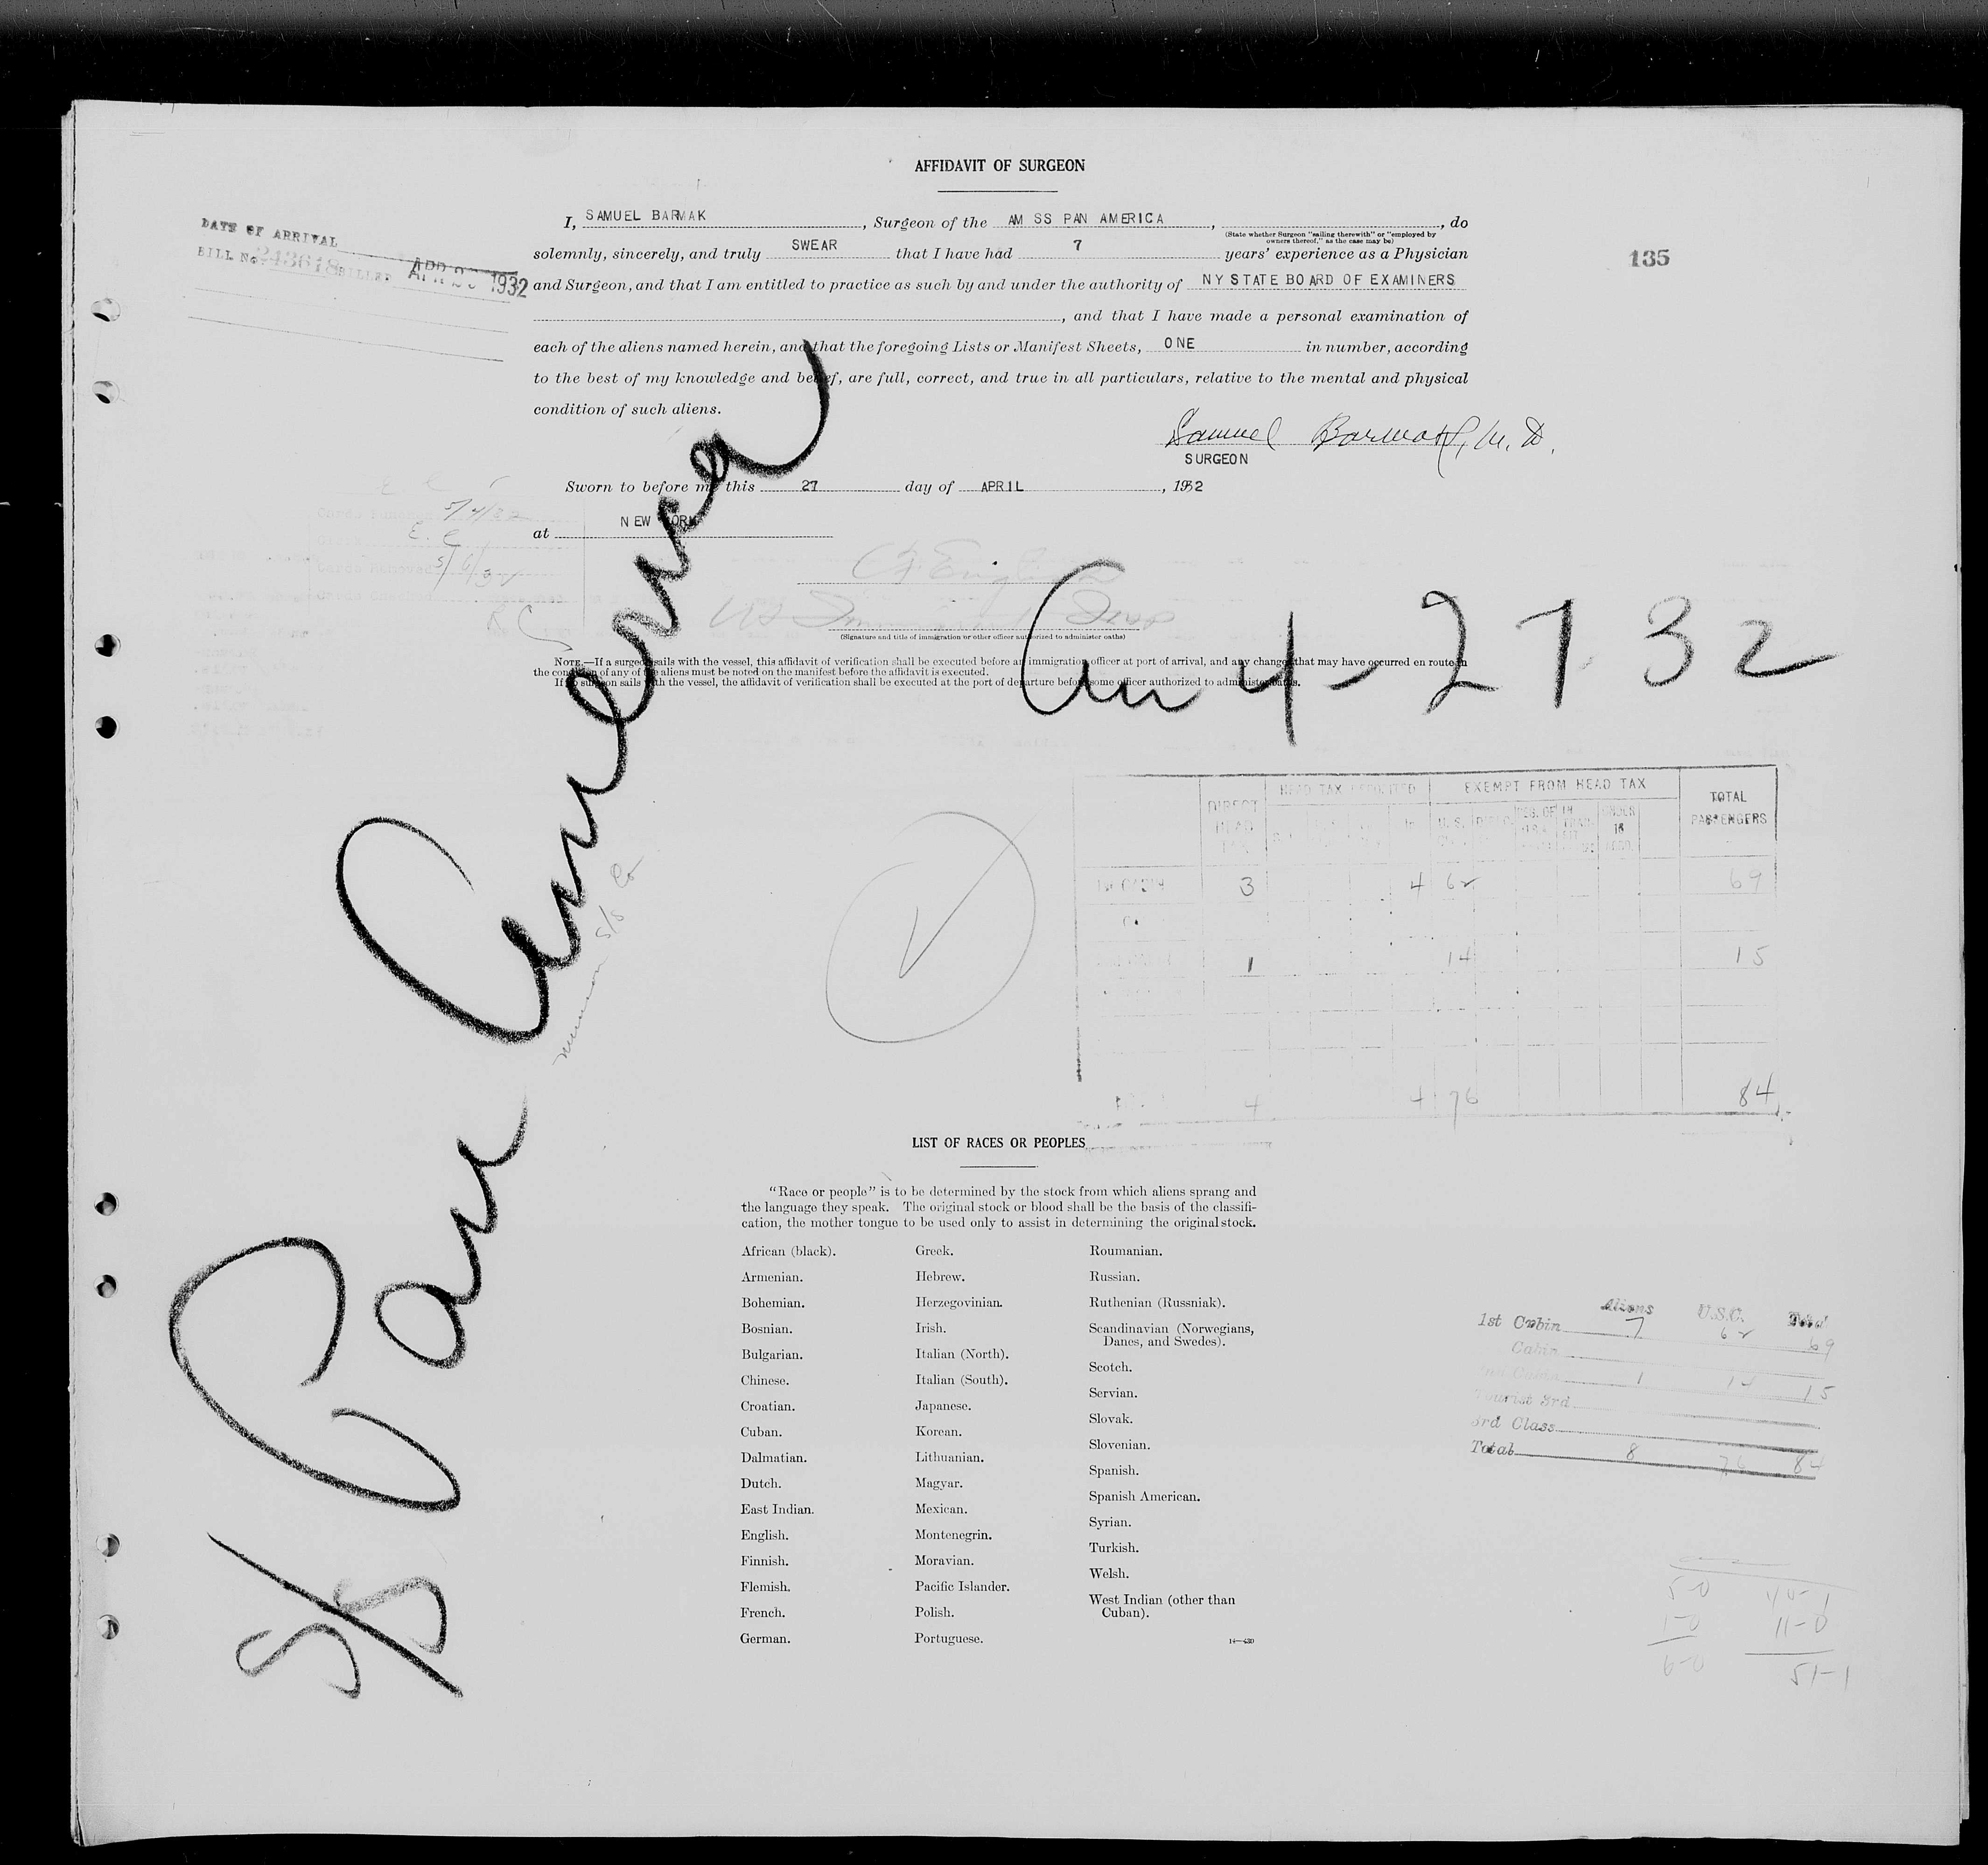 AFFIDAVIT OF SURGEON
DATE OF ARRIVAL
BILL No. 243618 BILLED APR 1932
135
I, SAMUEL BARMAK, Surgeon of the AM SS PAN AMERICA, , do
(State whether Surgeon "sailing therewith" or "employed by
owners thereof," as the case may be)
solemnly, sincerely, and truly SWEAR that I have had 7 years' experience as a Physician
and Surgeon, and that I am entitled to practice as such by and under the authority of NY STATE BOARD OF EXAMINERS
, and that I have made a personal examination of
each of the aliens named herein, and that the foregoing Lists or Manifest Sheets, ONE in number, according
to the best of my knowledge and belief, are full, correct, and true in all particulars, relative to the mental and physical
condition of such aliens.
Samuel Barmak, M.D.
SURGEON
Sworn to before me this 27 day of APRIL, 1932
at NEW YORK
Cards Removed
(Signature and title of immigration or other officer authorized to administer oaths)
NOTE.—If a surgeon sails with the vessel, this affidavit of verification shall be executed before an immigration officer at port of arrival, and any changes that may have occurred en route in
the condition of any of the aliens must be noted on the manifest before the affidavit is executed.
If no surgeon sails with the vessel, the affidavit of verification shall be executed at the port of departure before some officer authorized to administer oaths.
4-27 32
S/S Pan America
Munson S/S Co
DIRECT HEAD TAX
EXEMPT FROM HEAD TAX
TOTAL PASSENGERS
3 4 62 69
1 14 15
4 4 76 84
LIST OF RACES OR PEOPLES
"Race or people" is to be determined by the stock from which aliens sprang and
the language they speak. The original stock or blood shall be the basis of the classifi-
cation, the mother tongue to be used only to assist in determining the original stock.
African (black).
Armenian.
Bohemian.
Bosnian.
Bulgarian.
Chinese.
Croatian.
Cuban.
Dalmatian.
Dutch.
East Indian.
English.
Finnish.
Flemish.
French.
German.
Greek.
Hebrew.
Herzegovinian.
Irish.
Italian (North).
Italian (South).
Japanese.
Korean.
Lithuanian.
Magyar.
Mexican.
Montenegrin.
Moravian.
Pacific Islander.
Polish.
Portuguese.
Roumanian.
Russian.
Ruthenian (Russniak).
Scandinavian (Norwegians,
Danes, and Swedes).
Scotch.
Servian.
Slovak.
Slovenian.
Spanish.
Spanish American.
Syrian.
Turkish.
Welsh.
West Indian (other than
Cuban).
14—430
Aliens U.S.C. Total
1st Cabin 7 62 69
Cabin
2nd Cabin 1 14 15
Tourist 3rd
3rd Class
Total 8 76 84
5-0 40-1
1-0 11-0
6-0 51-1